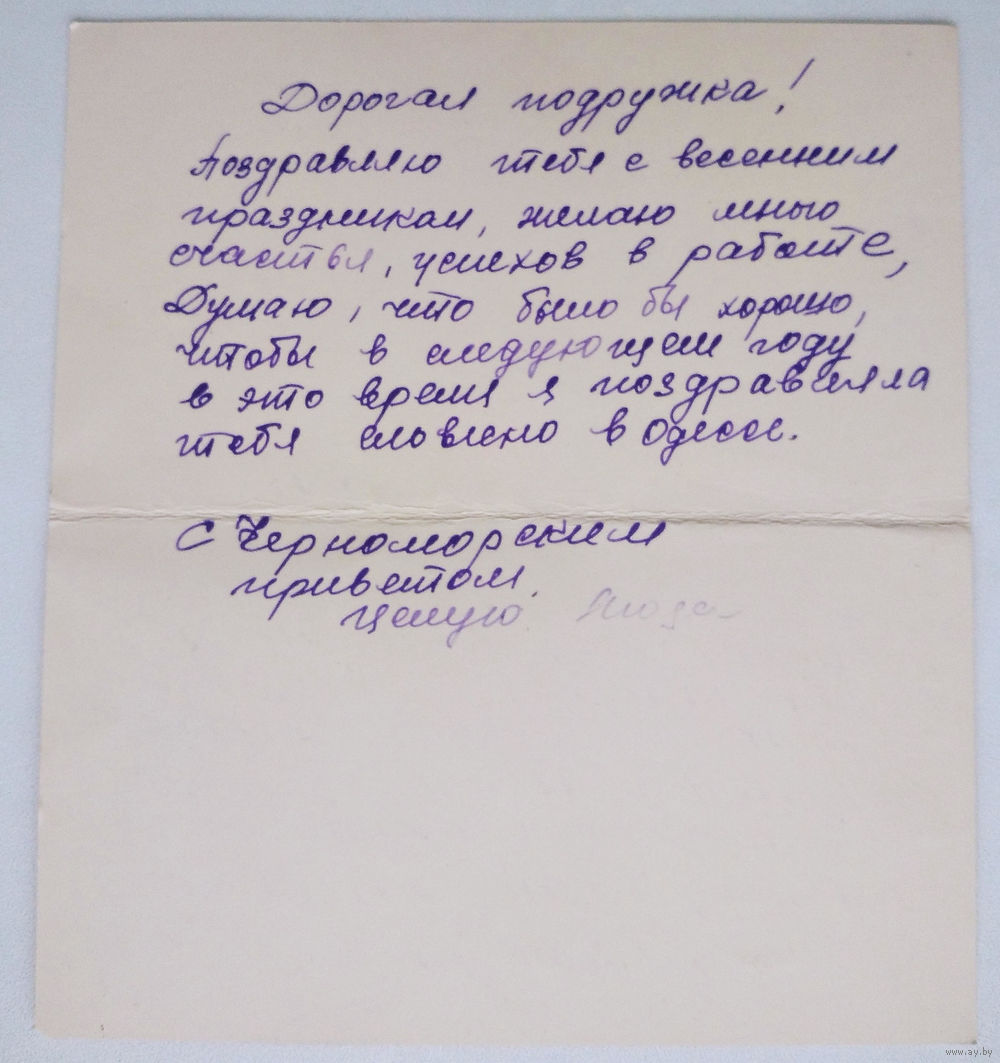 Дорогая подружка!
Поздравляю тебя с весенним
праздником, желаю много
счастья, успехов в работе,
Думаю, что было бы хорошо,
чтобы в следующем году
в это время я поздравляла
тебя словесно в Одессе.
С Черноморским
приветом.
Целую. Люда
www.ay.by